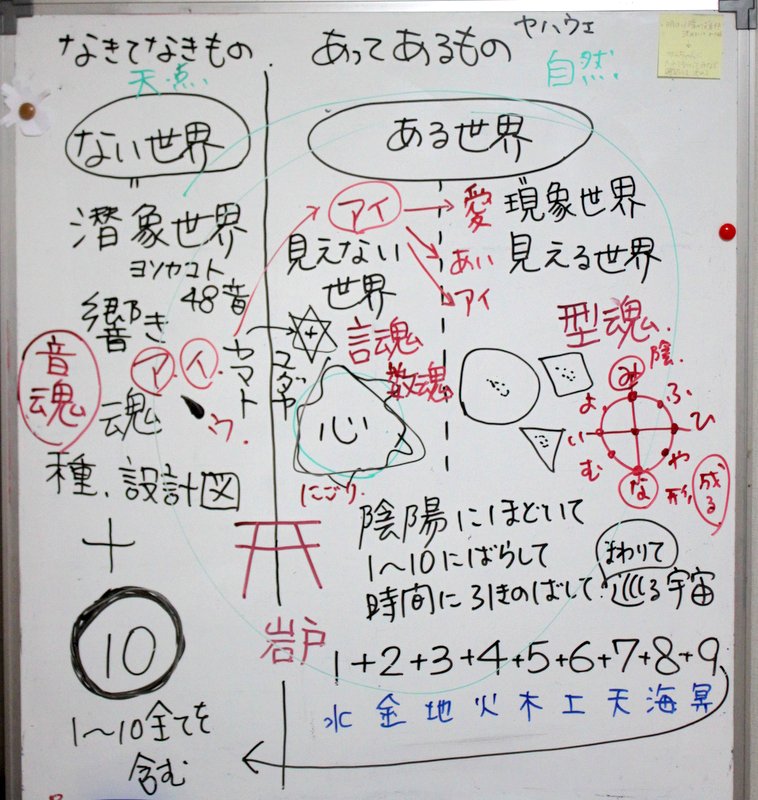 なきてなきもの
天点
ない世界
"
潜象世界
ヨソヤコト
48音
響き
音魂
ア.イ.
ウ.
魂
種.設計図
+
10
1〜10全てを
含む
ヤマト
ユダヤ
岩戸
あってあるもの
ヤハウェ
自然
ある世界
アイ
愛
あい
アイ
見えない
世界
現象世界
見える世界
言魂
数魂
+
心
にごり.
型魂.
陰.
み
ふ
ひ
や
な
む
い
よ
形
成る
陰陽にほどいて
1〜10にばらして
時間に引きのばして
まわりて
巡る宇宙
1+2+3+4+5+6+7+8+9
水 金 地 火 木 土 天 海 冥